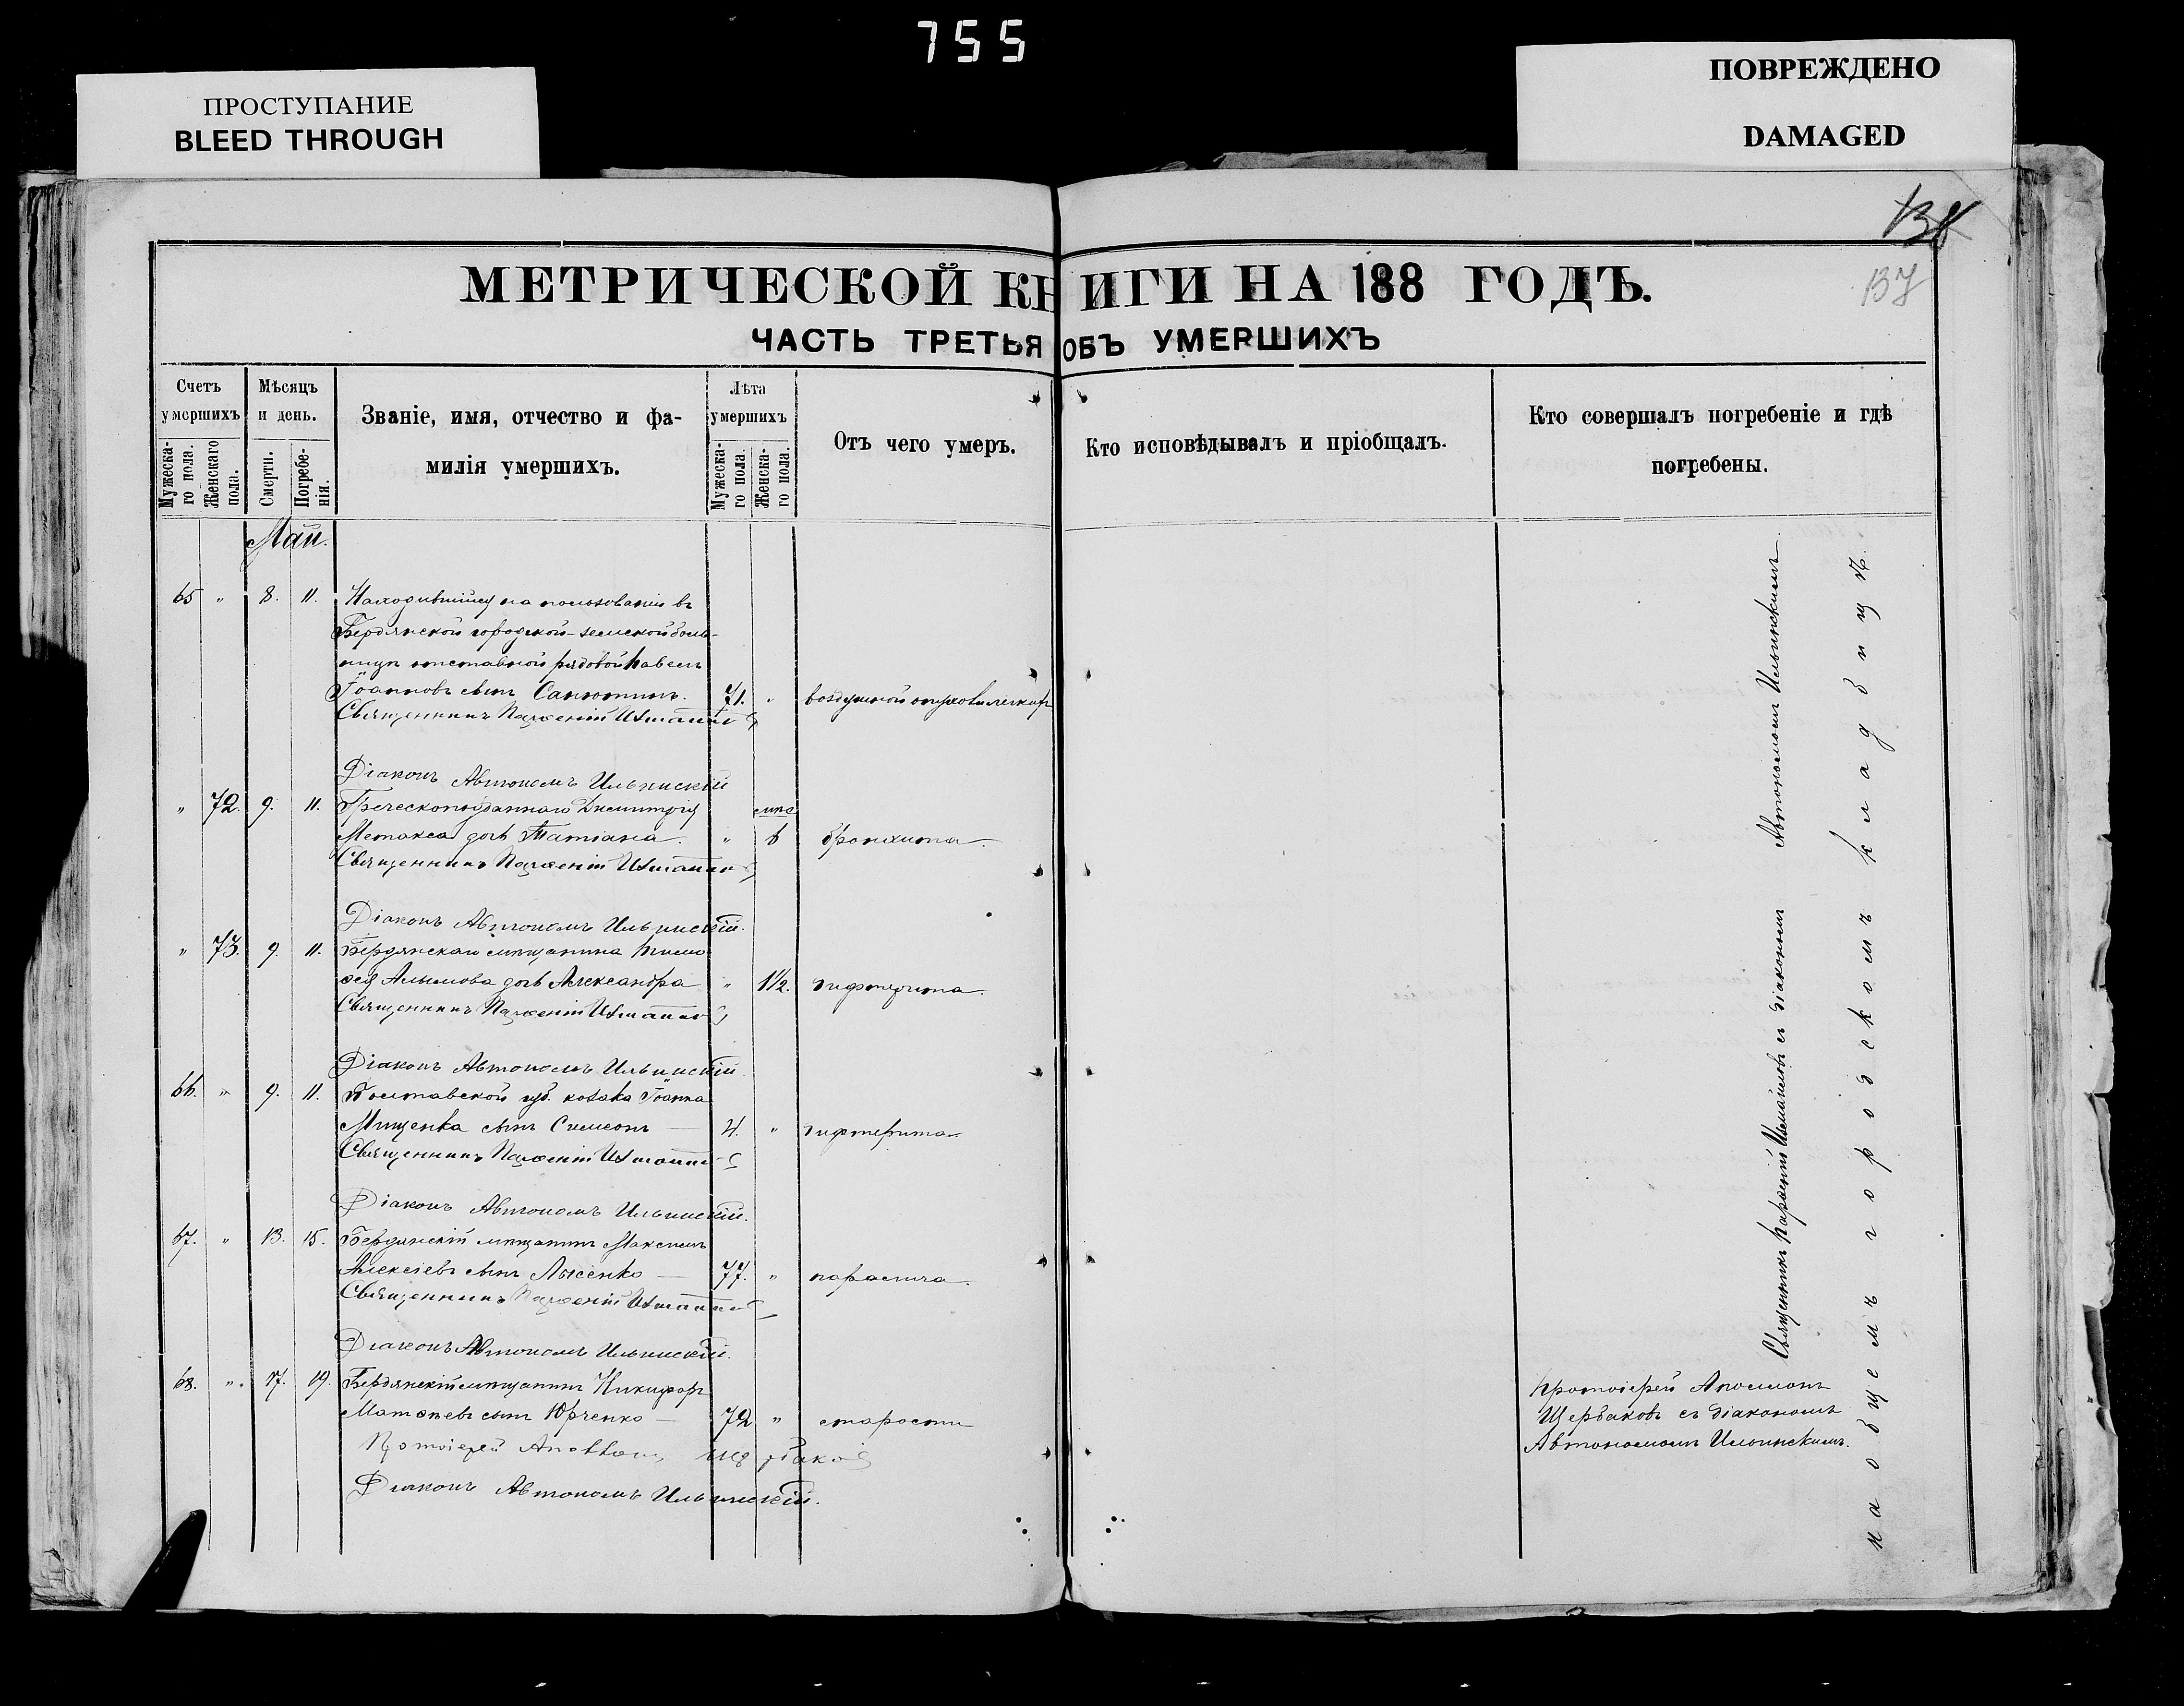 755
ПРОСТУПАНИЕ
BLEED THROUGH
ПОВРЕЖДЕНО
DAMAGED
138
137
МЕТРИЧЕСКОЙ КНИГИ НА 188 ГОДЪ.
ЧАСТЬ ТРЕТЬЯ ОБЪ УМЕРШИХЪ
Счетъ умершихъ
Мужеска-го пола.
Женскаго пола.
Мѣсяцъ и день.
Смерти.
Погребе-нія.
Званіе, имя, отчество и фа-
милія умершихъ.
Лѣта умершихъ
Мужеска-го пола.
Женска-го пола.
Отъ чего умеръ.
Кто исповѣдывалъ и пріобщалъ.
Кто совершалъ погребеніе и гдѣ
погребены.
Май.
65 " 8. 11. Находившійся на пользованіи въ
Бердянской городской-земской боль-
ницѣ отставной рядовой Павелъ
Іоанновъ сынъ 71. " воздушной опухоли легкихъ
Священникъ Парѳеній
Діаконъ Автономъ Ильинскій
" 72. 9. 11. Греческоподданнаго Димитрія
Метакса дочь Татіана. " 6 бронхита.
Священникъ Парѳеній
Діаконъ Автономъ Ильинскій.
" 73. 9. 11. Бердянскаго мѣщанина Тимо-
ѳея Алымова дочь Александра " 1½. дифтерита.
Священникъ Парѳеній
Діаконъ Автономъ Ильинскій
66. " 9. 11. Полтавской губ. козака Іоанна
Мищенка сынъ Симеонъ 4. " дифтерита
Священникъ Парѳеній
Діаконъ Автономъ Ильинскій.
67. " 13. 15. Бердянскій мѣщанинъ Максимъ
Алексіевъ сынъ Лысенко 77. " паралича.
Священникъ Парѳеній
Діаконъ Автономъ Ильинскій.
68. " 17. 19. Бердянскій мѣщанинъ Никифоръ
Матѳеевъ сынъ Юрченко 72 " старости
Протоіерей Аполлонъ Щербаковъ
Діаконъ Автономъ Ильинскій.
Священникъ Парѳеній съ діакономъ Автономомъ Ильинскимъ.
Протоіерей Аполлонъ
Щербаковъ съ діакономъ
Автономомъ Ильинскимъ.
на общемъ городскомъ кладбищѣ.